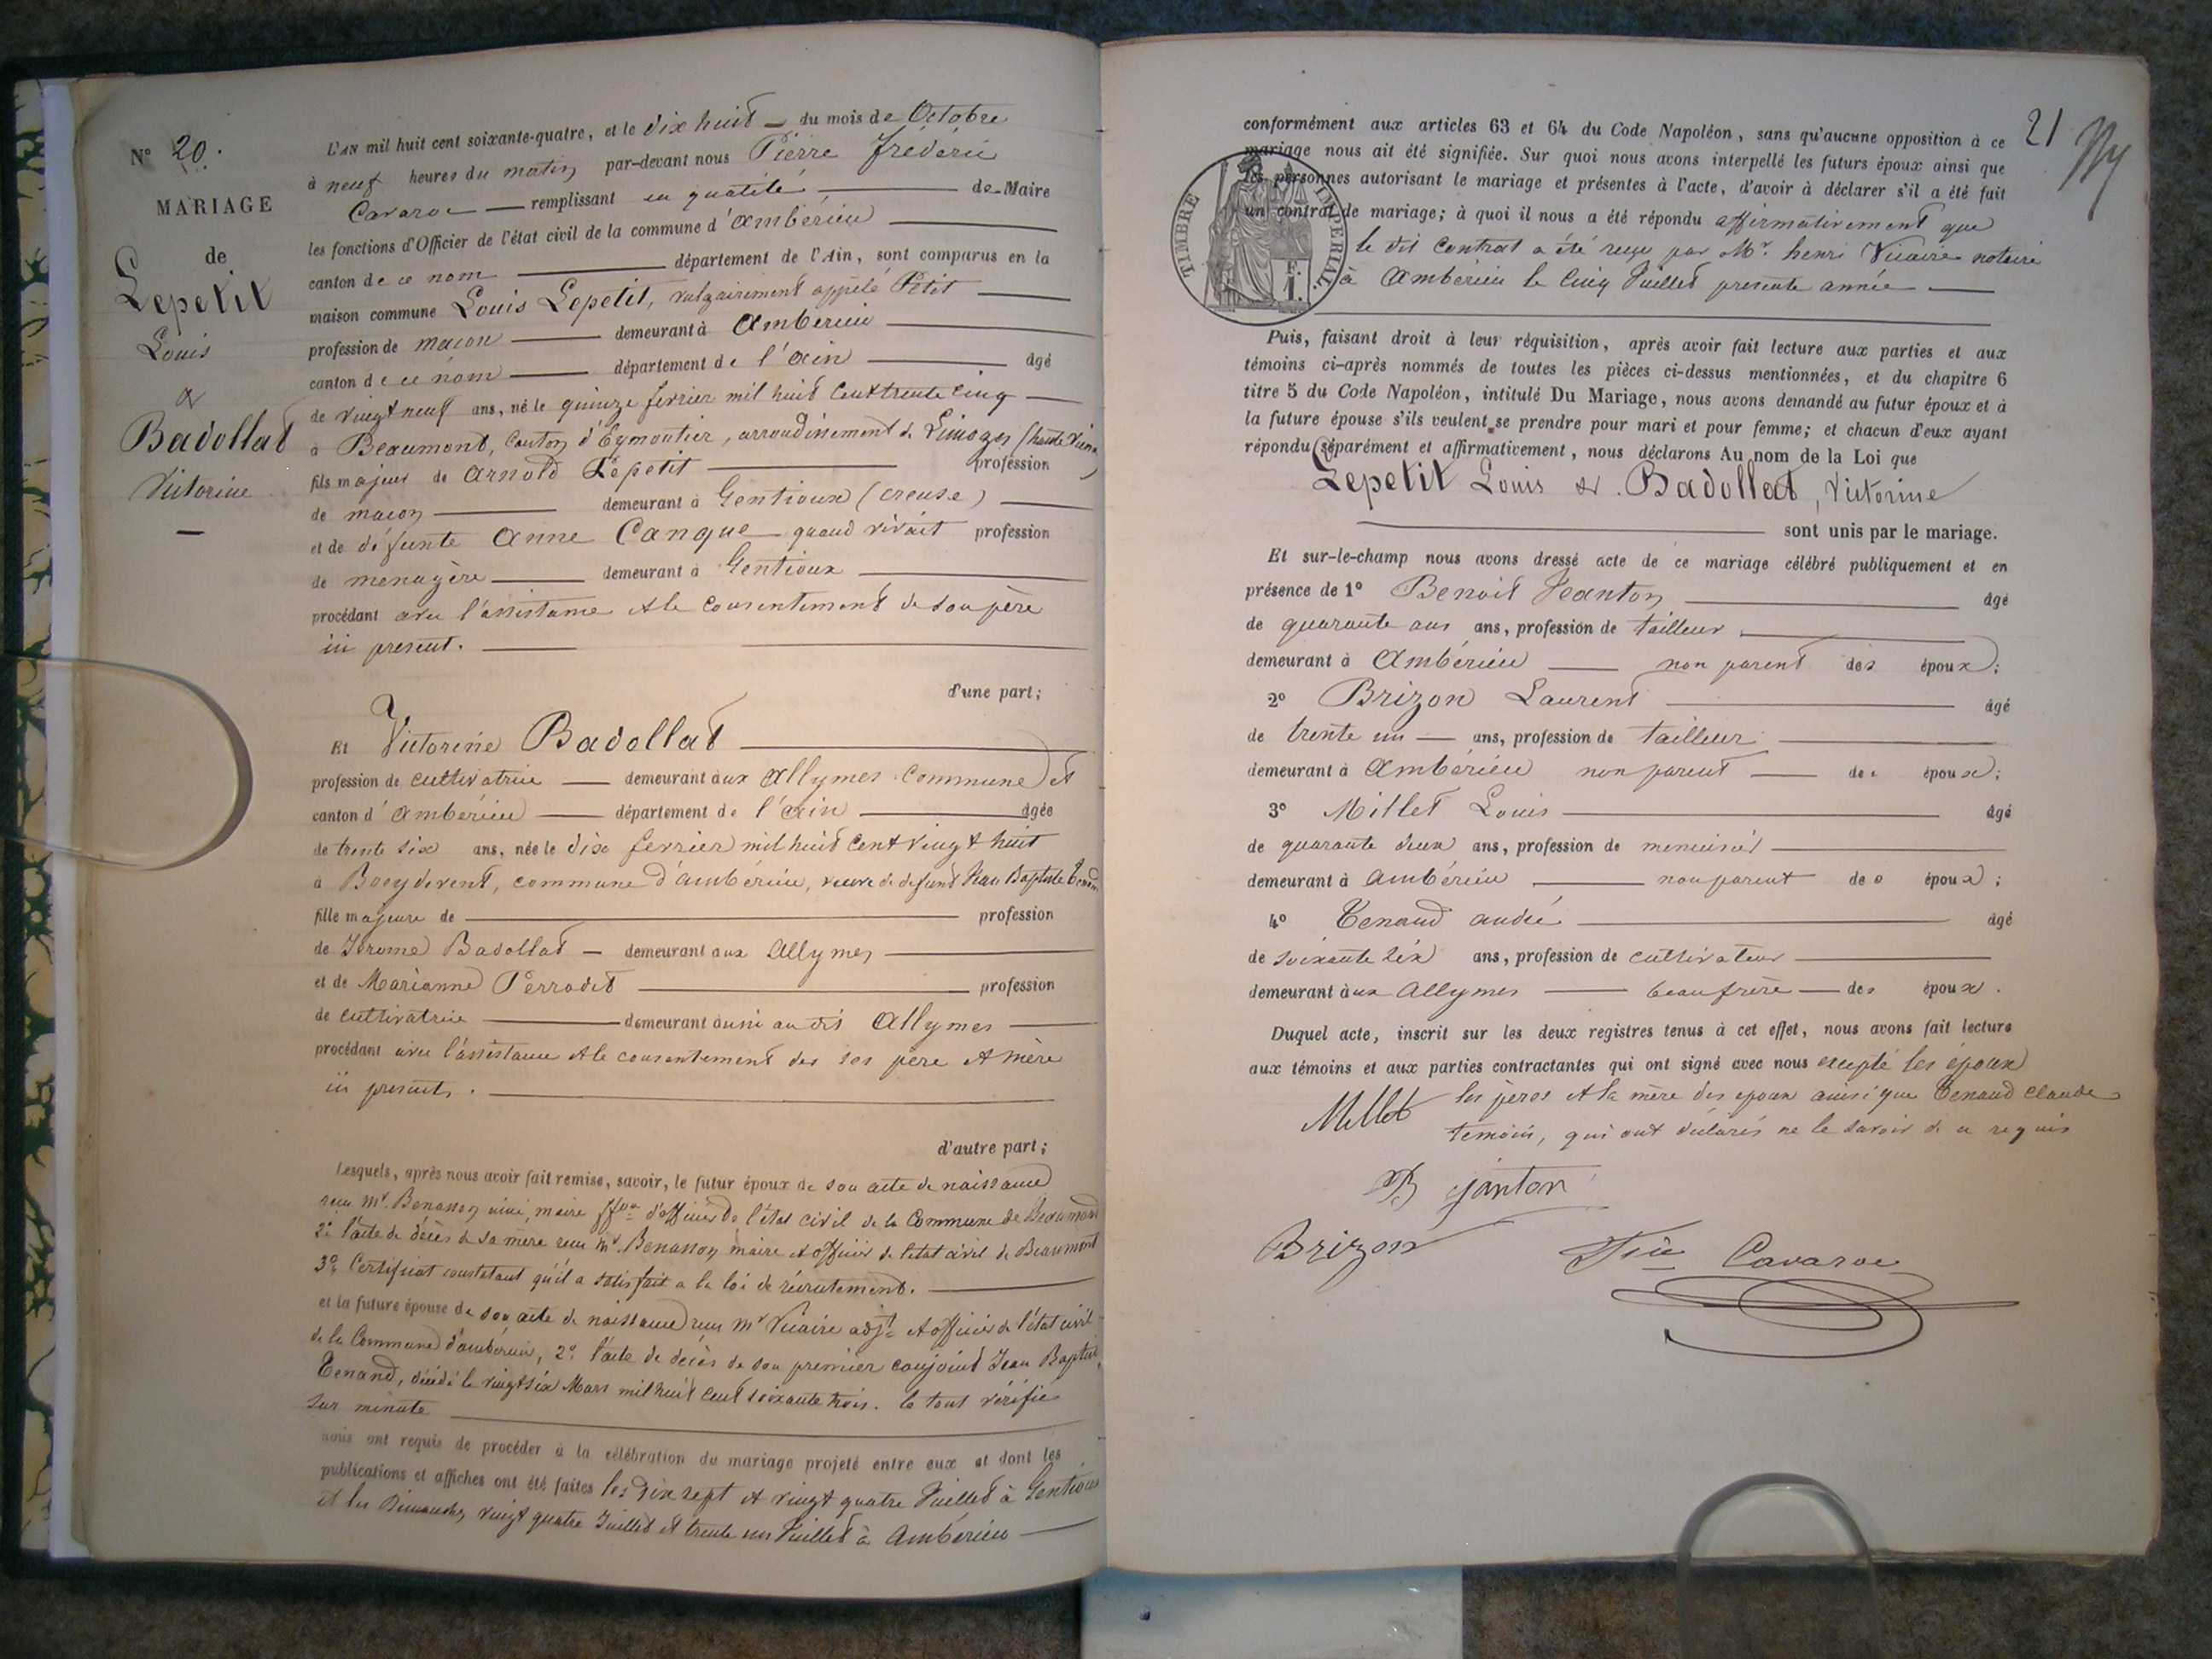 N° 20.
MARIAGE
de
Lepetit
Louis
&
Badollat
Victorine
L'AN mil huit cent soixante-quatre, et le dix huit du mois de Octobre
à neuf heures du matin par-devant nous Pierre Fréderic
Cavaroc remplissant en qualité de Maire
les fonctions d'Officier de l'état civil de la commune d'ambérieu
canton de ce nom département de l'Ain, sont comparus en la
maison commune Louis Lepetit, vulgairement appelé Petit
profession de maçon demeurant à Ambérieu
canton de ce nom département de l'ain âgé
de vingt neuf ans, né le quinze fevrier mil huit cent trente cinq
à Beaumont, canton d'Eymoutier, arrondissement de Limoges (haute Vienne)
fils majeur de Arnold Lepetit profession
de maçon demeurant à Gentioux (creuse)
et de défunte Anne Canque quand vivait profession
de menagère demeurant à Gentioux
procédant avec l'assistance & le consentement de son père
ici present.
d'une part;
Et Victorine Badollat
profession de cultivatrice demeurant aux allymes commune et
canton d'ambérieu département de l'ain âgée
de trente six ans, née le dix fevrier mil huit cent vingt huit
à commune d'ambérieu, veuve de defunt Jean Baptiste Tenand
fille majeure de profession
de Jérome Badollat demeurant aux allymes
et de Marianne Perrodet profession
de cultivatrice demeurant aussi au dis allymes
procédant avec l'assistance & le consentement des ses père & mère
ici presents.
d'autre part;
Lesquels, après nous avoir fait remise, savoir, le futur époux de son acte de naissance
recu mr. Benassy maire d'officier de l'état civil de la Commune de Beaumont
2° l'acte de décès de sa mère recu mr. Benassoy maire & officier de l'etat civil de Beaumont
3° Certificat constatant qu'il a satisfait a la loi de recrutement.
et la future épouse de son acte de naissance recu mr Vicaire adjt & officier de l'état civil
de la Commune d'ambérieu, 2° l'acte de décès de son premier conjoint Jean Baptiste
Tenand, décédé le vingt six Mars mil huit cent soixante trois. le tout vérifié
sur minute
nous ont requis de procéder à la célébration du mariage projeté entre eux et dont les
publications et affiches ont été faites les dix sept & vingt quatre Juillet à Gentioux
et les Dimanches vingt quatre Juillet et trente un Juillet à ambérieu
21
conformément aux articles 63 et 64 du Code Napoléon, sans qu'aucune opposition à ce
mariage nous ait été signifiée. Sur quoi nous avons interpellé les futurs époux ainsi que
les personnes autorisant le mariage et présentes à l'acte, d'avoir à déclarer s'il a été fait
un contrat de mariage; à quoi il nous a été répondu affirmativement que
le dit contrat a été reçu par Mr. henri Vicaire notaire
à Ambérieu le cinq Juillet presente année
TIMBRE IMPERIAL
F.
1.
Puis, faisant droit à leur réquisition, après avoir fait lecture aux parties et aux
témoins ci-après nommés de toutes les pièces ci-dessus mentionnées, et du chapitre 6
titre 5 du Code Napoléon, intitulé Du Mariage, nous avons demandé au futur époux et à
la future épouse s'ils veulent se prendre pour mari et pour femme; et chacun d'eux ayant
répondu séparément et affirmativement, nous déclarons Au nom de la Loi que
Lepetit Louis & Badollat, Victorine
sont unis par le mariage.
Et sur-le-champ nous avons dressé acte de ce mariage célébré publiquement et en
présence de 1° Benoit Jeanton âgé
de quarante ans ans, profession de tailleur
demeurant à Ambérieu non parent des époux;
2° Brizon Laurent âgé
de trente un ans, profession de tailleur
demeurant à Ambérieu non parent des époux;
3° Millet Louis âgé
de quarante deux ans, profession de menuisier
demeurant à ambérieu non parent des époux;
4° Tenand andré âgé
de soixante six ans, profession de cultivateur
demeurant aux allymes beaufrère des époux.
Duquel acte, inscrit sur les deux registres tenus à cet effet, nous avons fait lecture
aux témoins et aux parties contractantes qui ont signé avec nous excepté les époux
les pères & la mère des epoux ainsi que Tenand claude
temoin, qui ont déclarés ne le savoir de ce requis
Millet
B janton
Brizon
Fric Cavaroc